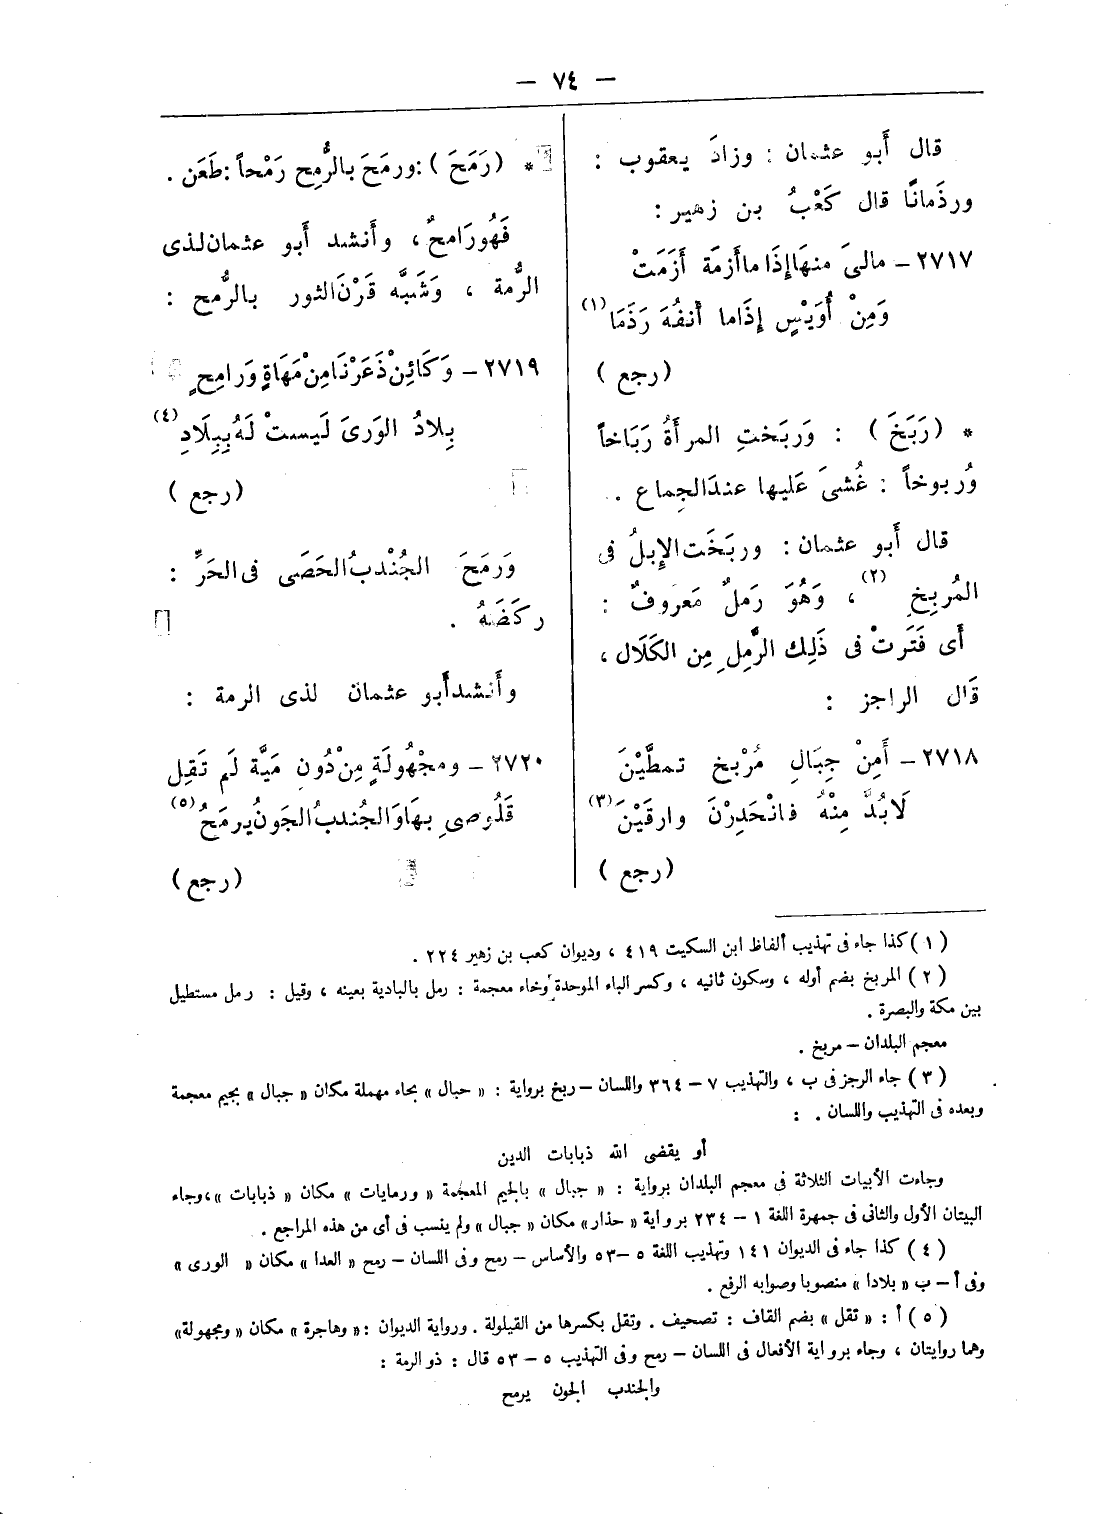 — ٧٤ —
قال أَبو عثمان : وزادَ يعقوب :
ورذَمانًا قال كَعْبُ بن زهير :
٢٧١٧ – مالىَ منهَا إِذَا ما أَزمَة أَزَمَتْ
وَمِنْ أُوَيْسٍ إِذَاما أَنفُهَ رَذَمَا (١)
(رجع)
* (رَبَخَ) : وَربَختِ المرأَةُ رَبَاخاً
وُربوخاً : غُشىَ عَليها عندَالجِماع .
قال أَبو عثمان : وربَخَت الإِبلُ فى
المُربِخِ (٢) ، وَهُوَ رَملٌ مَعروفٌ :
أَى فَتَرتْ فى ذَلِك الرَّملِ مِن الكَلَال ،
قَال الراجز :
٢٧١٨ – أَمِنْ جِبَالِ مُرْبخ تمطَّيْنَ
لَابُدَّ مِنْهُ فانْحَدِرْنَ وارقَيْنَ (٣)
(رجع)
* (رَمَحَ) : ورمَحَ بالرُّمِح رَمْحاً : طَعَن .
فَهُورَامحٌ ، وأَنشد أَبو عثمان لذى
الرُّمة ، وَشَبَّه قَرْنَ الثور بالرُّمح :
٢٧١٩ – وَكَائِنْ ذَعَرْنَا مِنْ مَهَاةٍ وَرامِحٍ
بِلادُ الوَرىَ لَيستْ لَهُ بِبِلَادِ (٤)
(رجع)
وَرمَحَ الجُنْدبُ الحَصَى فى الحَرِّ :
ركَضَهُ .
وأَنشد أَبو عثمان لذى الرمة :
٢٧٢٠ – ومجْهُولَةٍ مِنْ دُونِ مَيَّة لَم تَقِل
قَلُوصىِ بهَا وَالجُندبُ الجَونُ يرمَحُ (٥)
(رجع)
(١) كذا جاء فى تهذيب ألفاظ ابن السكيت ٤١٩ ، وديوان كعب بن زهير ٢٢٤ .
(٢) المربخ بضم أوله ، وسكون ثانيه ، وكسر الباء الموحدة وخاء معجمة : رمل بالبادية بعينه ، وقيل : رمل مستطيل
بين مكة والبصرة .
معجم البلدان – مربخ .
(٣) جاء الرجز فى ب ، والتهذيب ٧ – ٣٦٤ واللسان – ربخ برواية : « حبال » بحاء مهملة مكان « جبال » بجيم معجمة
وبعده فى التهذيب واللسان . :
أو يقضى الله ذبابات الدين
وجاءت الأبيات الثلاثة فى معجم البلدان برواية : « جبال » بالجيم المعجمة « ورمايات » مكان « ذبابات » ، وجاء
البيتان الأول والثانى فى جمهرة اللغة ١ – ٢٣٤ برواية « حذار » مكان « جبال » ولم ينسب فى أى من هذه المراجع .
(٤) كذا جاء فى الديوان ١٤١ وتهذيب اللغة ٥ – ٥٣ والأساس – رمح وفى اللسان – رمح « العدا » مكان « الورى »
وفى أ – ب « بلادا » منصوبا وصوابه الرفع .
(٥) أ : « تقل » بضم القاف : تصحيف . وتقل بكسرها من القيلولة . ورواية الديوان : « وهاجرة » مكان « ومجهولة »
وهما روايتان ، وجاء برواية الأفعال فى اللسان – رمح وفى التهذيب ٥ – ٥٣ قال : ذو الرمة :
والجندب الجون يرمح